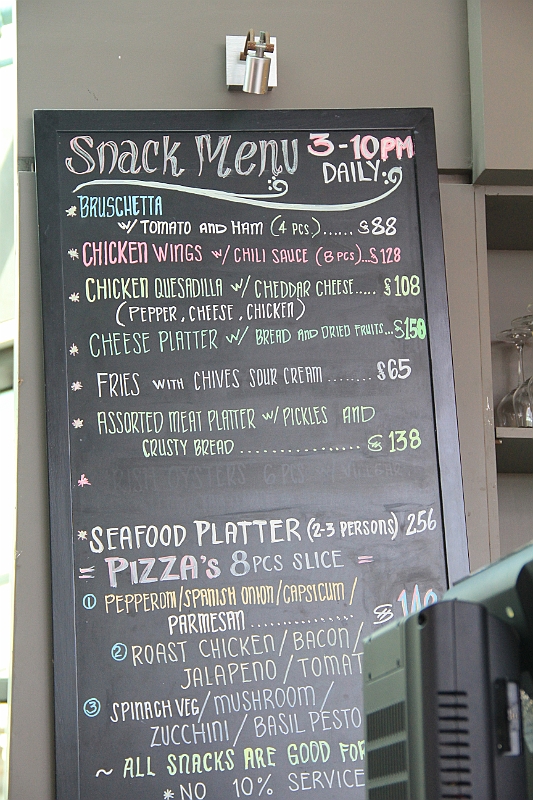 Snack Menu 3-10PM
DAILY
* BRUSCHETTA
W/ TOMATO AND HAM (4 PCS.)...... $88
* CHICKEN WINGS W/ CHILI SAUCE (8 PCS)...$128
* CHICKEN QUESADILLA W/ CHEDDAR CHEESE..... $108
(PEPPER, CHEESE, CHICKEN)
* CHEESE PLATTER W/ BREAD AND DRIED FRUITS...$158
* FRIES WITH CHIVES SOUR CREAM ........ $65
* ASSORTED MEAT PLATTER W/ PICKLES AND
CRUSTY BREAD .................. $138
*
OYSTERS 6 PCS
* SEAFOOD PLATTER (2-3 PERSONS) 256
= PIZZA's 8PCS SLICE =
① PEPPERONI/SPANISH ONION/CAPSICUM/
PARMESAN .................. $
② ROAST CHICKEN/BACON/
JALAPENO/TOMAT
③ SPINACH VEG/MUSHROOM/
ZUCCHINI/BASIL PESTO
~ ALL SNACKS ARE GOOD FOR
*NO 10% SERVICE